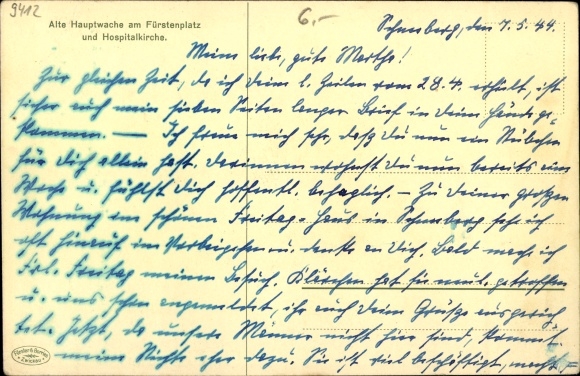 9412
6.-
Alte Hauptwache am Fürstenplatz
und Hospitalkirche.
Schneeberg, den 7.5.44.
Meine liebe, gute Marthe!
Zur gleichen Zeit, da ich Deine l. Zeilen vom 28.4. erhielt, ist
sicher auch mein sieben Seiten langer Brief in Deine Hände ge-
kommen. — Ich freue mich sehr, daß Du nun ein Stübchen
für Dich allein hast. Darinnen wohnst Du nun bereits eine
Woche u. fühlst Dich hoffentl. behaglich. — Zu Deiner großen
Wohnung im schönen Freitag-Haus in Schneeberg seh ich
oft hinauf im Vorbeigehen u. denke an Dich. Bald mache ich
Frl. Freitag meinen Besuch. Klärchen hat sie neul. getroffen
u. uns schon angemeldet, ihr auch Deine Grüße ausgerich-
tet. Jetzt, da unsere Männer nicht hier sind, kommt
meine Nichte eher dazu. Sie ist viel beschäftigt, macht
Zwickau